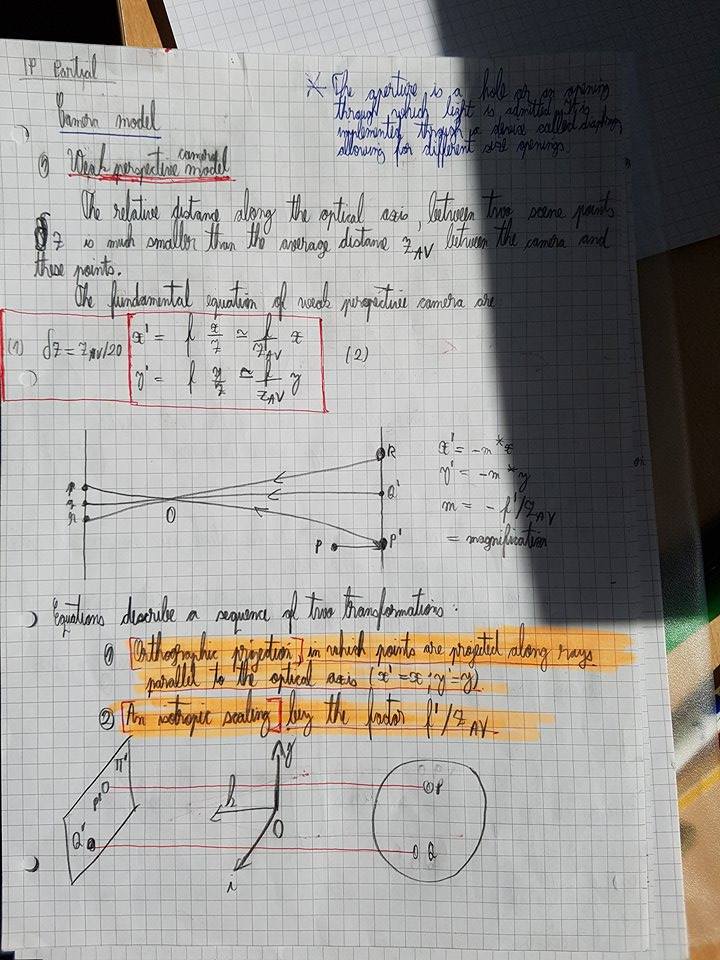 IP Partial
* The aperture is a hole or an opening
through which light is admitted. It is
implemented through a device called diaphragm
allowing for different size openings.
Camera model
① Weak perspective camera model
The relative distance along the optical axis, between two scene points
δz is much smaller than the average distance z_AV between the camera and
these points.
The fundamental equation of weak perspective camera are
(1) δz = z_AV/20
x' = f x/z ≃ f/z_AV x
y' = f y/z ≃ f/z_AV y
(2)
p
q
r
O
R
Q'
P
P'
x' = -m * x
y' = -m * y
m = - f'/z_AV
= magnification
Equations describe a sequence of two transformations:
① Orthographic projection, in which points are projected along rays
parallel to the optical axis (x'=x; y'=y)
② An isotropic scaling by the factor f'/z_AV
π'
P'
Q'
k
y
O
i
P
Q